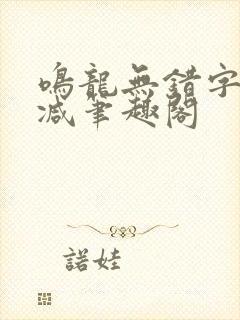 鳴龍無錯字
减筆趣閣
諾娃